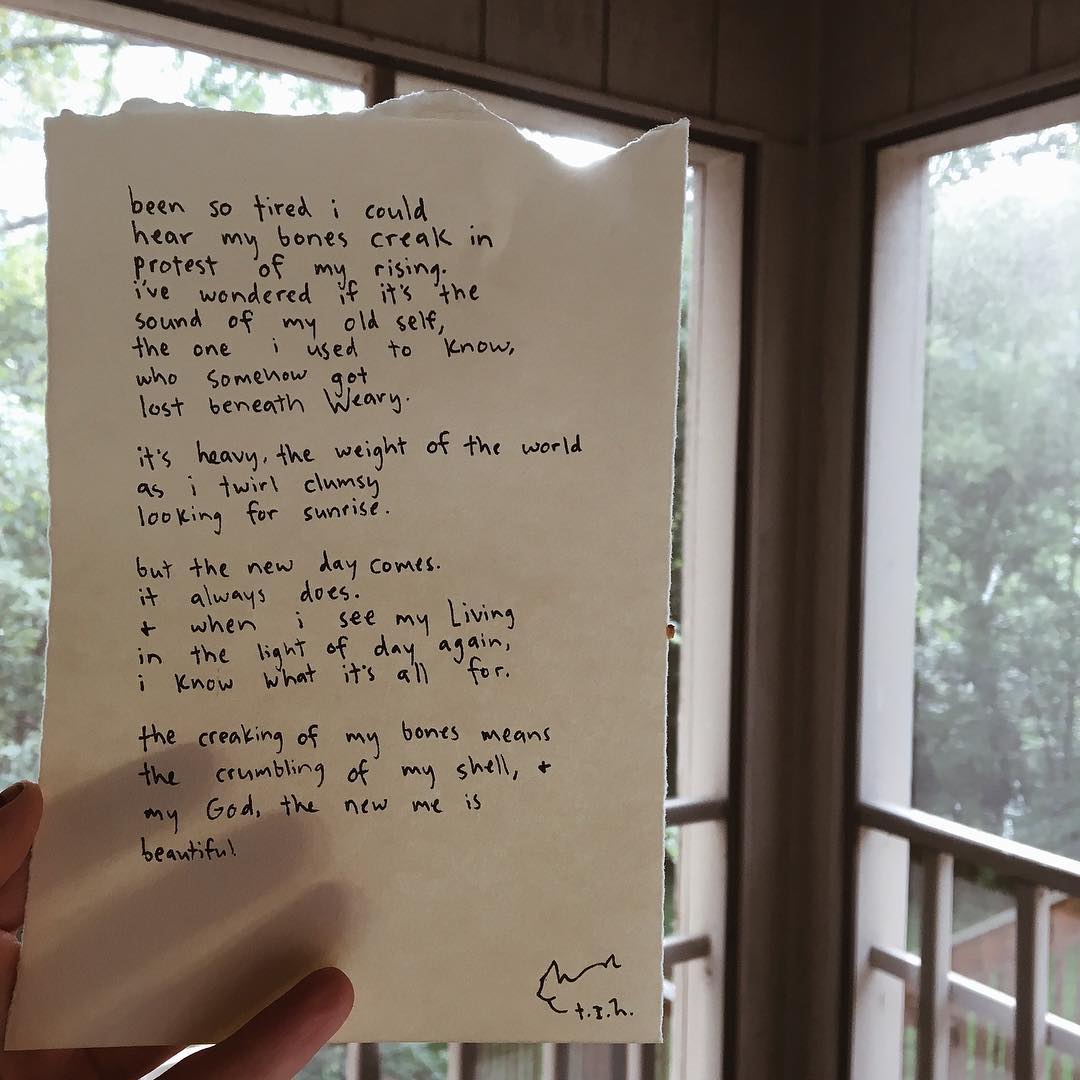 been so tired i could
hear my bones creak in
protest of my rising.
i've wondered if it's the
sound of my old self,
the one i used to know,
who somehow got
lost beneath Weary.
it's heavy, the weight of the world
as i twirl clumsy
looking for sunrise.
but the new day comes.
it always does.
+ when i see my Living
in the light of day again,
i know what it's all for.
the creaking of my bones means
the crumbling of my shell, +
my God, the new me is
beautiful.
t.s.h.